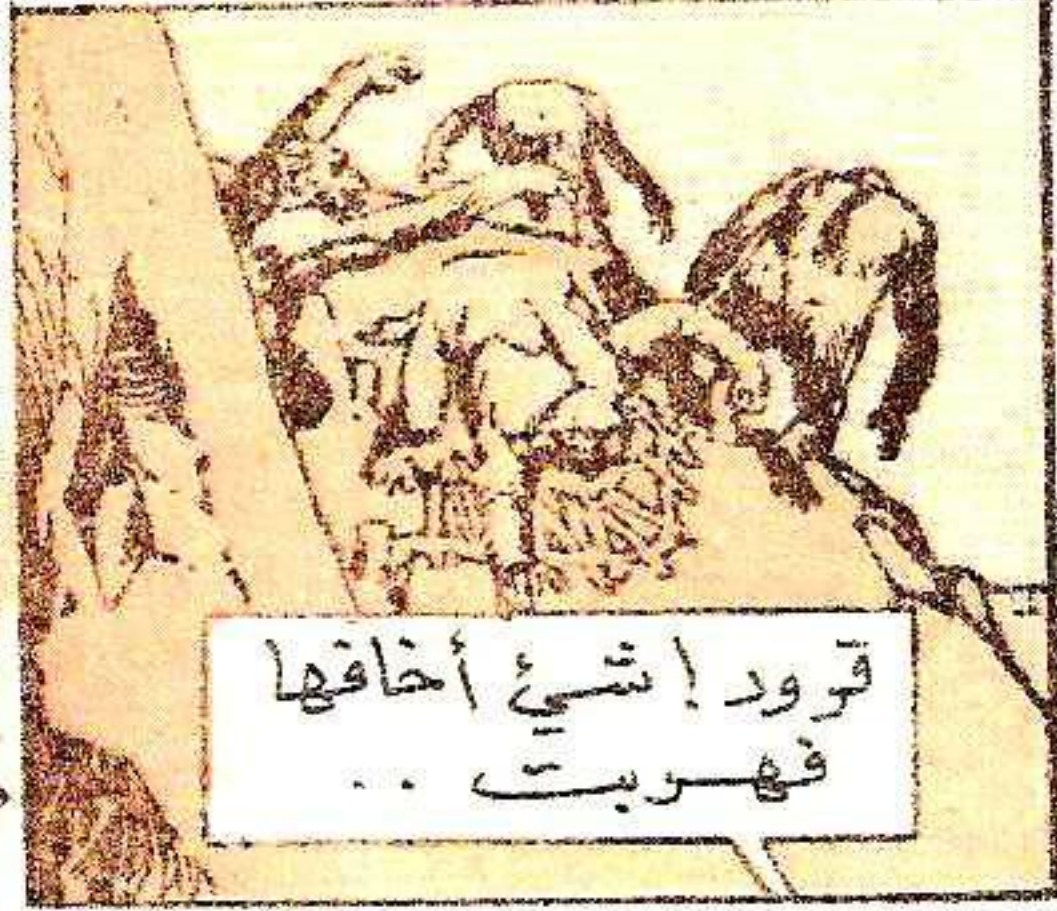 قرود ! شيئ أخافها
فهربت ..